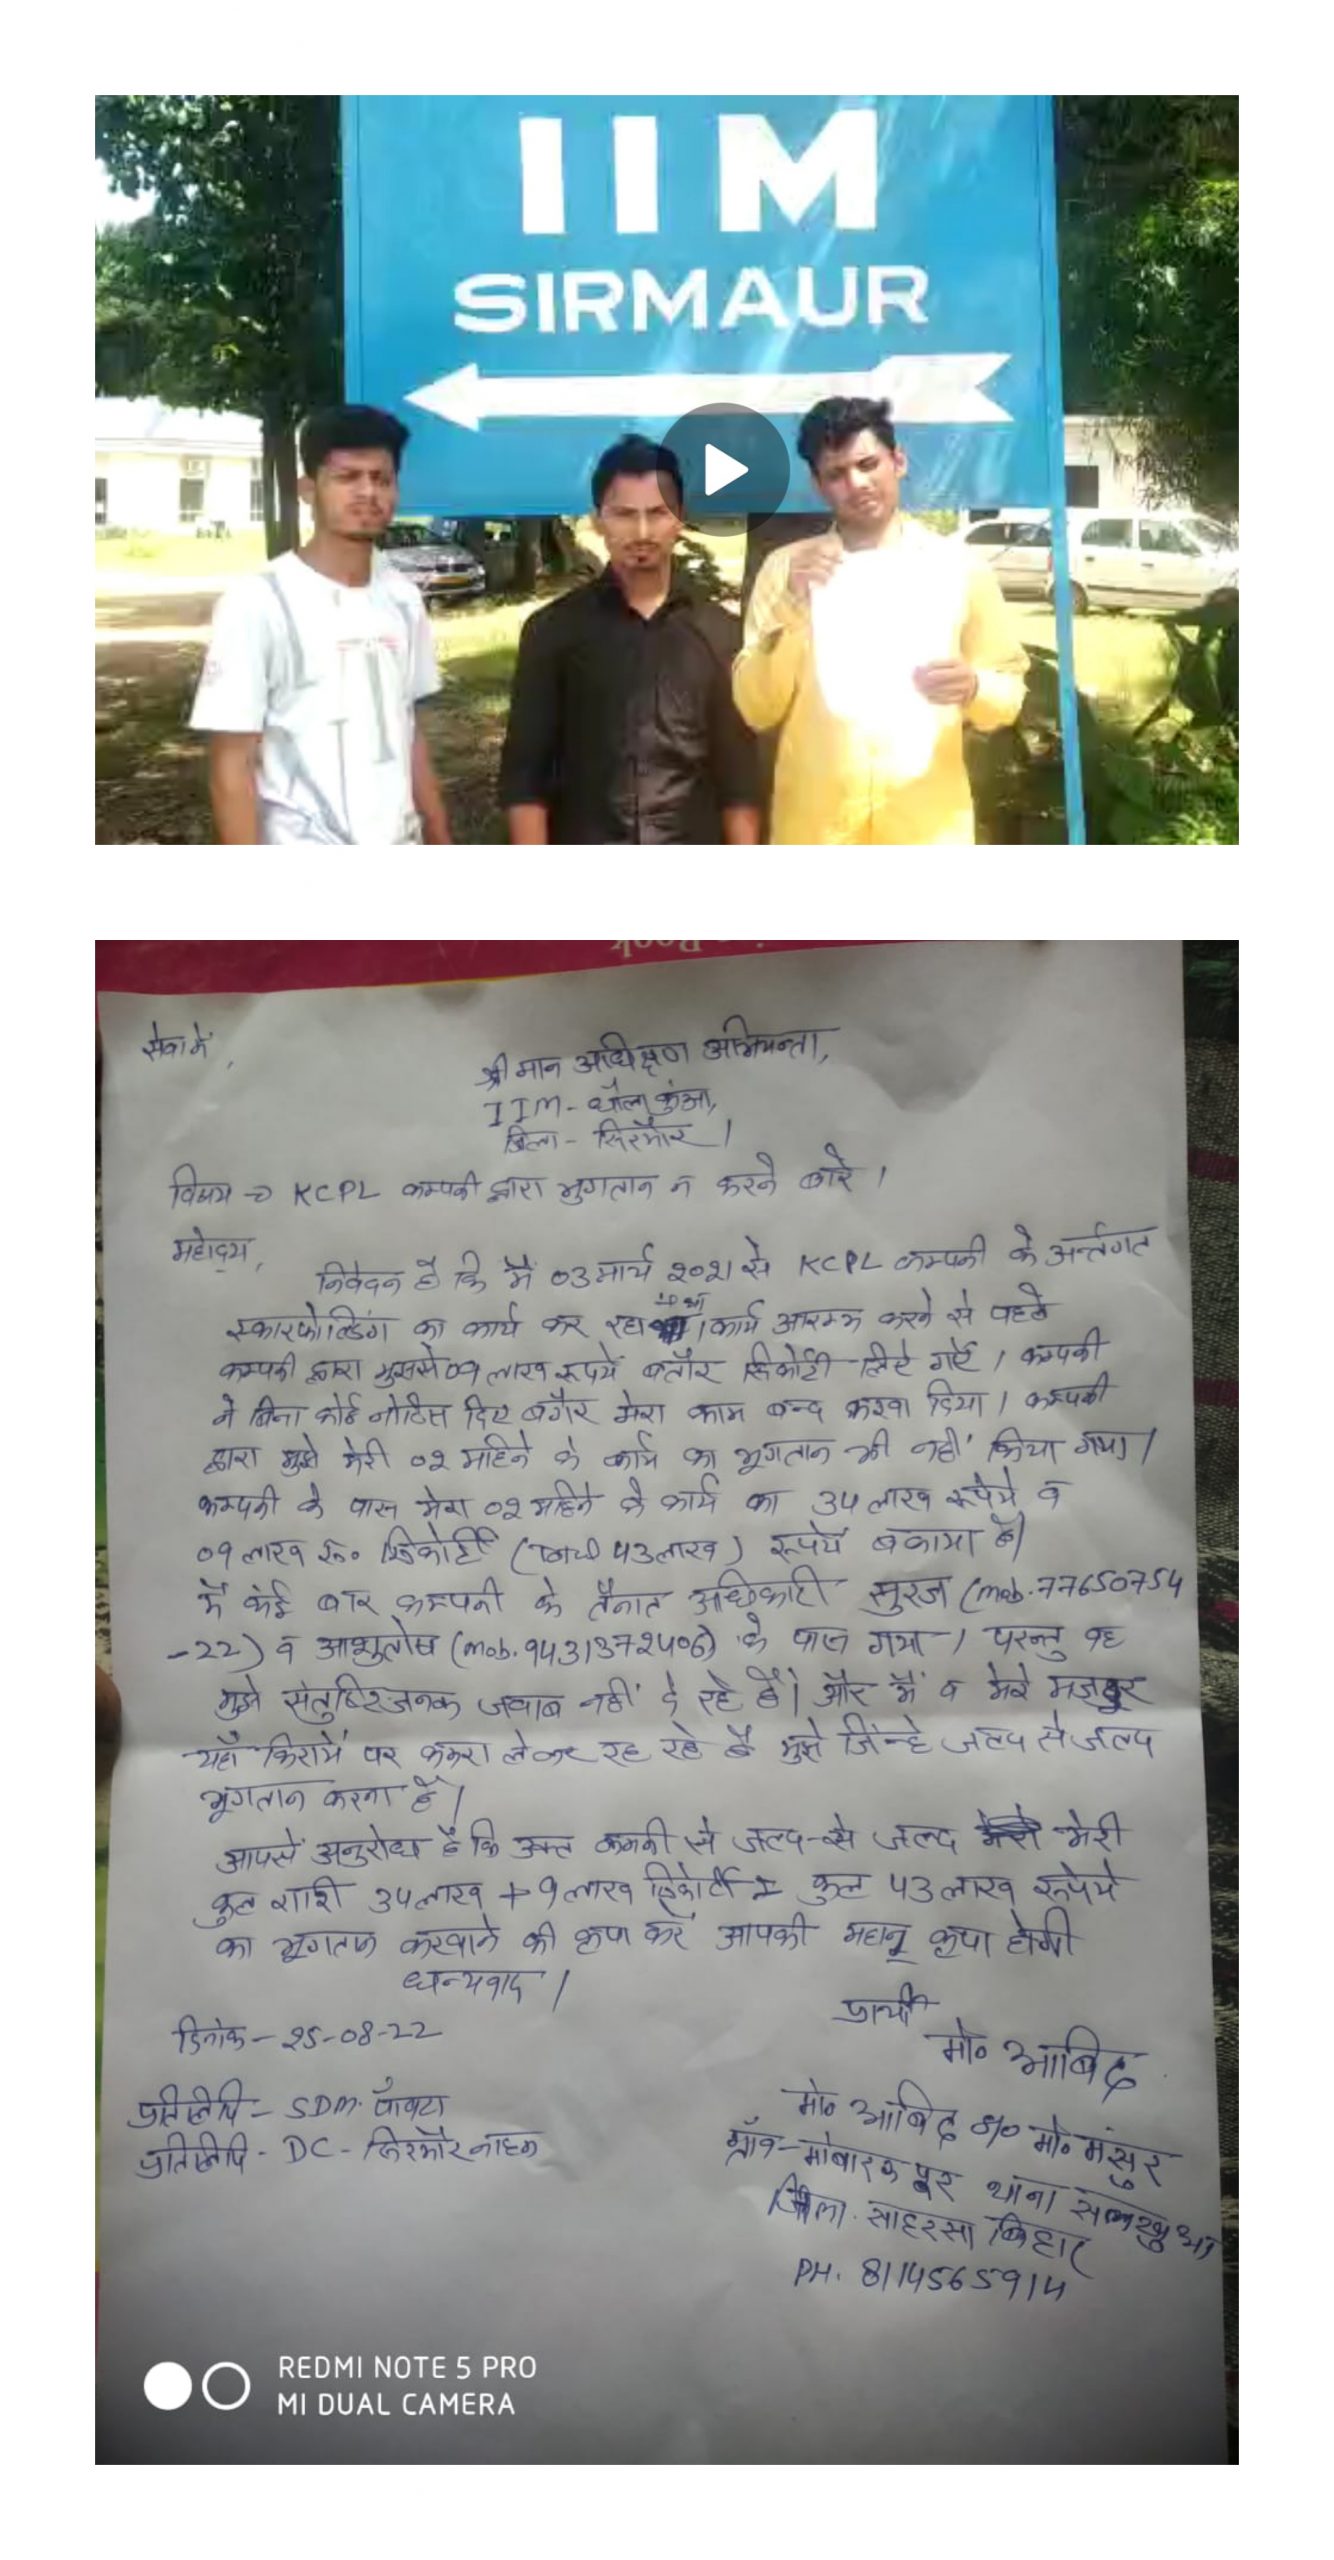 IIM
SIRMAUR
सेवा में,
श्री मान अधिक्षण अभियन्ता,
IIM - धौला कुंआ,
जिला - सिरमौर ।
विषय → KCPL कम्पनी द्वारा भुगतान न करने बारे ।
महोदय,
निवेदन है कि मैं 03 मार्च 2021 से KCPL कम्पनी के अर्न्तगत
स्कारफोल्डिंग का कार्य कर रहा । कार्य आरम्भ करने से पहले
कम्पनी द्वारा मुझसे लाख रूपयें बतौर सिकोर्टी लिए गऐ । कम्पनी
ने बिना कोई नोटिस दिए बगैर मेरा काम बन्द करवा दिया । कम्पनी
द्वारा मुझे मेरी 02 महिने के कार्य का भूगतान भी नहीं किया गया ।
कम्पनी के पास मेरा 02 महिने के कार्य का लाख रूपेये व
लाख रू० सिकोर्टी ( लाख) रूपयें बकाया है।
मैं कई बार कम्पनी के तैनात अधिकारी सुरज (mob. 77650754
-22) व आशुतोष (mob. 9431372406) के पास गया । परन्तु वह
मुझे संतुष्टिजनक जवाब नहीं दे रहे हैं। और मैं व मेरे मजदूर
यहाँ किरायें पर कमरा लेकर रह रहे है मुझे जिन्हे जल्द से जल्द
भूगतान करना है।
आपसे अनुरोध है कि उक्त कम्पनी से जल्द-से जल्द मेरी
कुल राशी लाख + लाख सिकोर्टी = कुल लाख रूपेये
का भूगतान करवाने की कृपा करें आपकी महान् कृपा होगी
धन्यवाद ।
दिनांक - 25-08-22
प्रार्थी
मो० आबिद
प्रतिलिपि - SDM. पॉवटा
प्रतिलिपि - DC - सिरमौर नाहन
मो० आबिद S/o मो० मंसुर
ग्रॉव - मोबारकपुर थाना सलखुआ
जिला. साहरसा बिहार
PH. 8114565914
REDMI NOTE 5 PRO
MI DUAL CAMERA